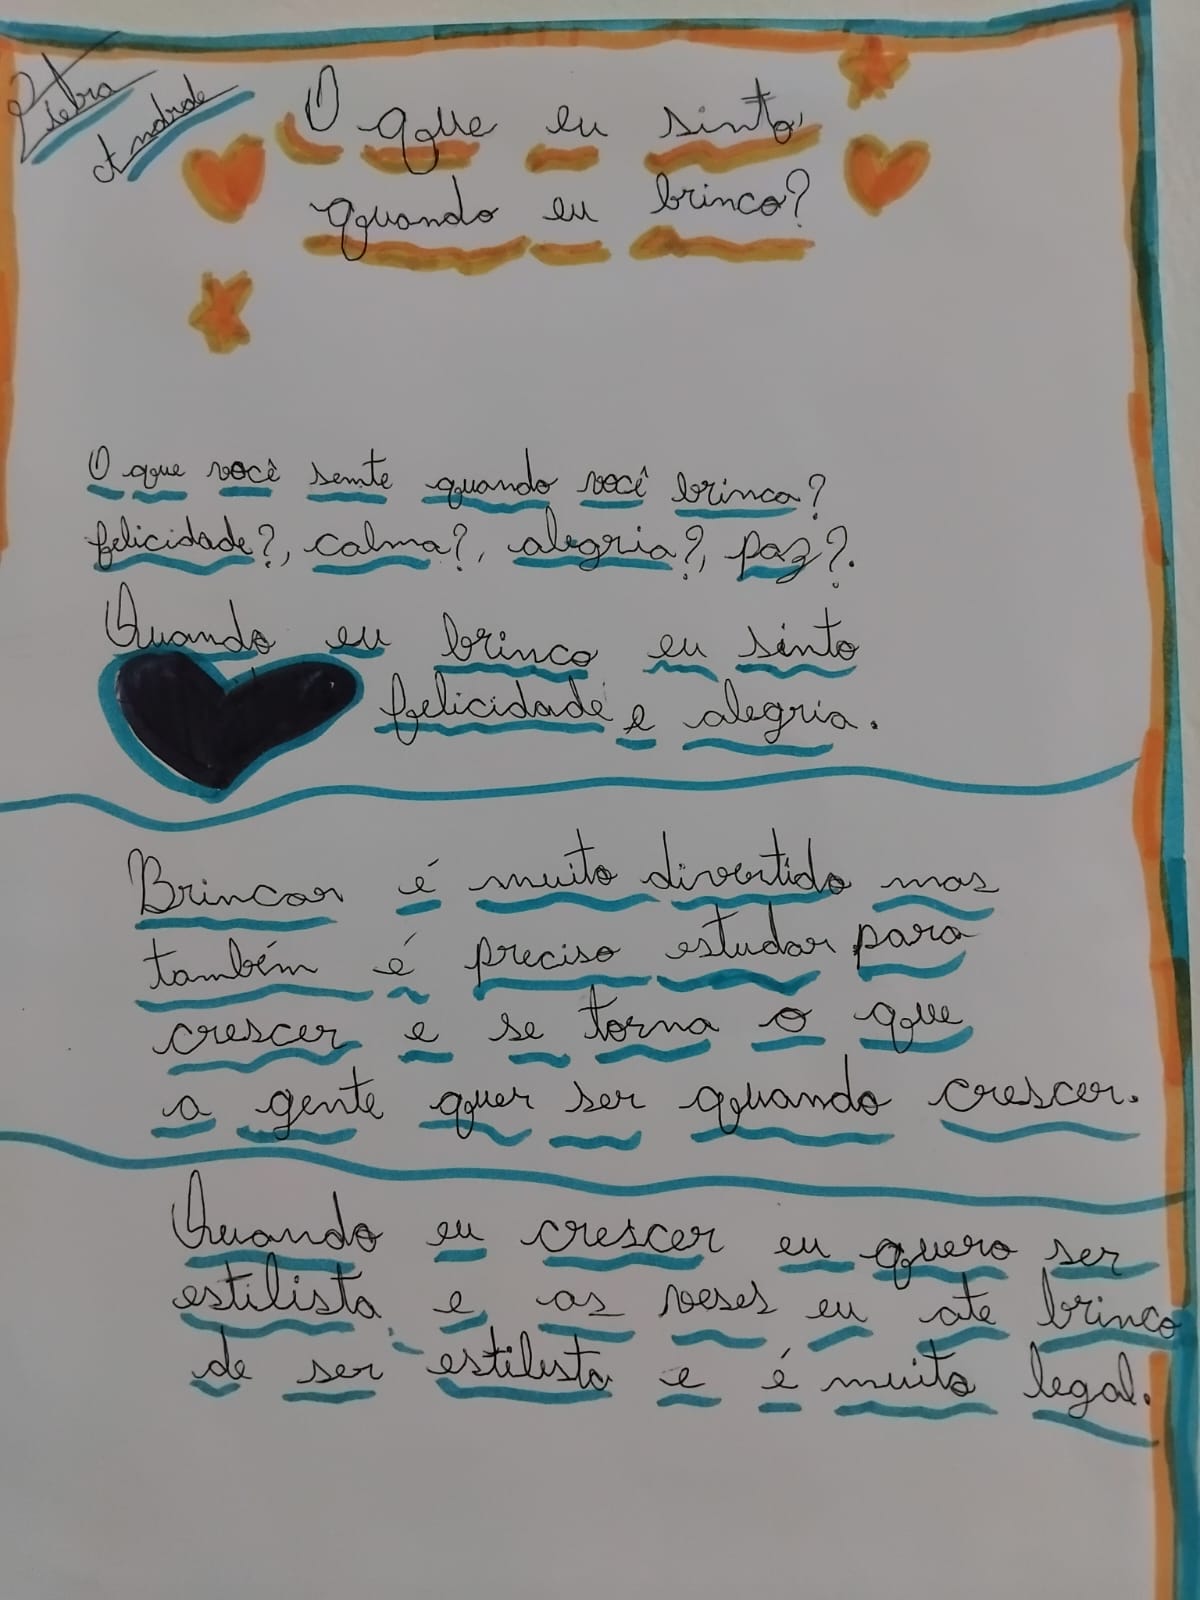 Pietra
Andrade
O que eu sinto
quando eu brinco?
O que você sente quando você brinca?
felicidade?, calma?, alegria?, paz?.
Quando eu brinco eu sinto
felicidade e alegria.
Brincar é muito divertido mas
também é preciso estudar para
crescer e se torna o que
a gente quer ser quando crescer.
Quando eu crescer eu quero ser
estilista e as veses eu ate brinco
de ser estilista e é muito legal.